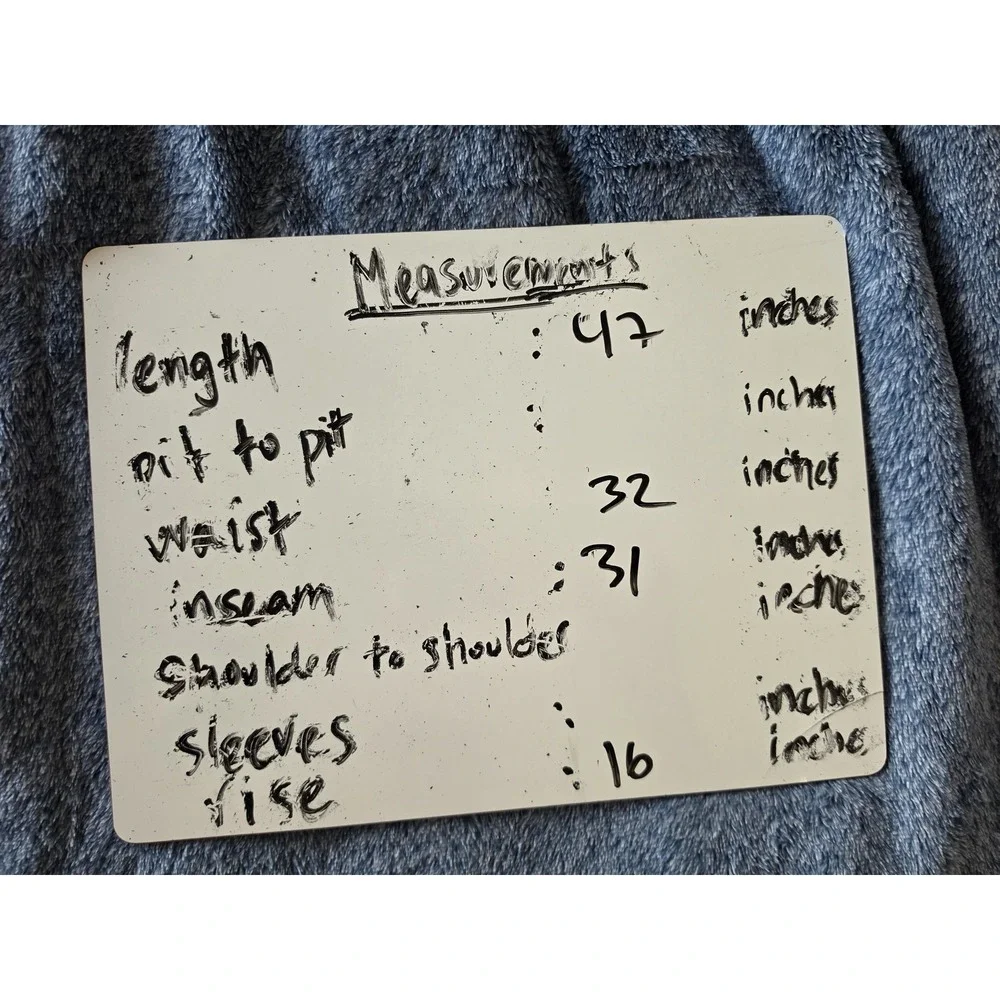 Measurements
length : 47 inches
pit to pit : inches
waist 32 inches
inseam : 31 inches
shoulder to shoulder inches
sleeves : inches
rise : 16 inches